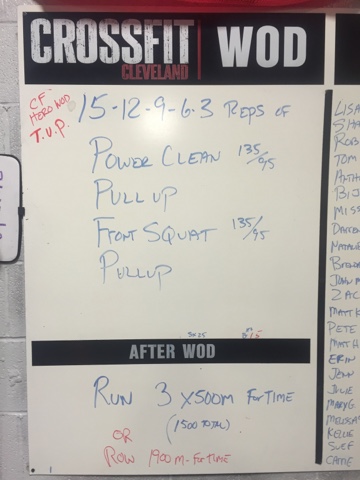 CROSSFIT
CLEVELAND
WOD
CF
HERO WOD
T.U.P.
15-12-9-6-3 REPS OF
POWER CLEAN 135/95
PULL UP
FRONT SQUAT 135/95
PULLUP
AFTER WOD
RUN 3 X500M FOR TIME
(1500 TOTAL)
OR
ROW 1900M-FOR TIME
LISA
SHA
ROB
TOM
MISS
DARREN
NATALIE
JOHN M
ZAC
MATT K
PETE
MATT H
ERIN
JENN
JULIE
MARYG
MELISSA
KELLIE
SUEF